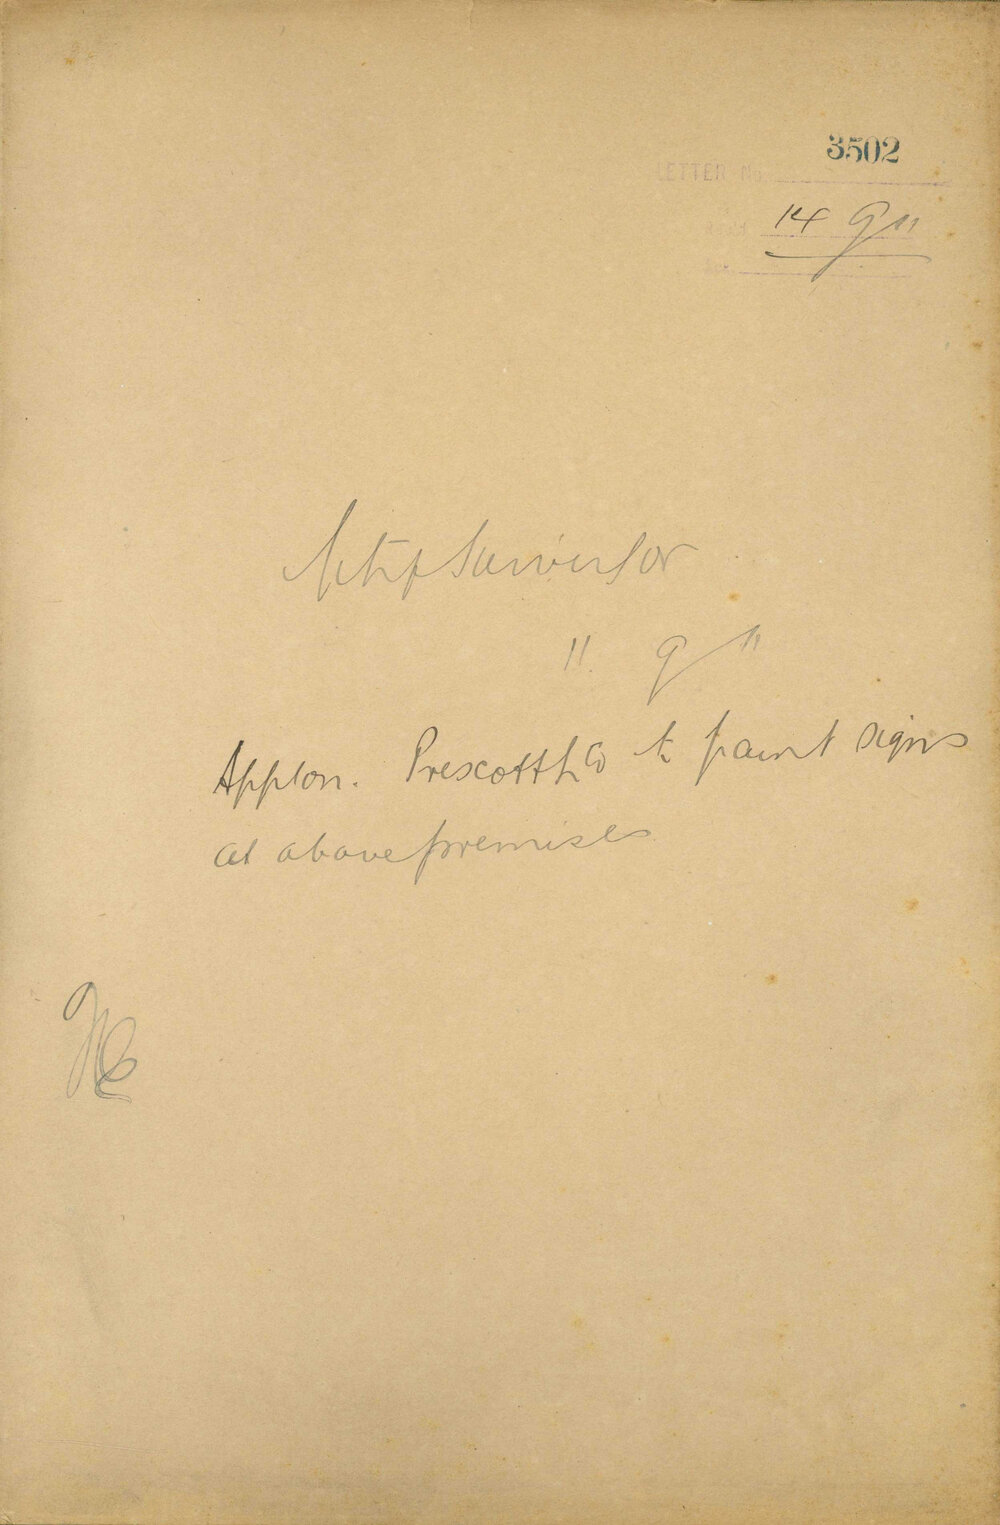 3502
LETTER No.
14 9 11
City Surveyor
11 9 11
Applon. Prescott & Co to paint signs
at above premises